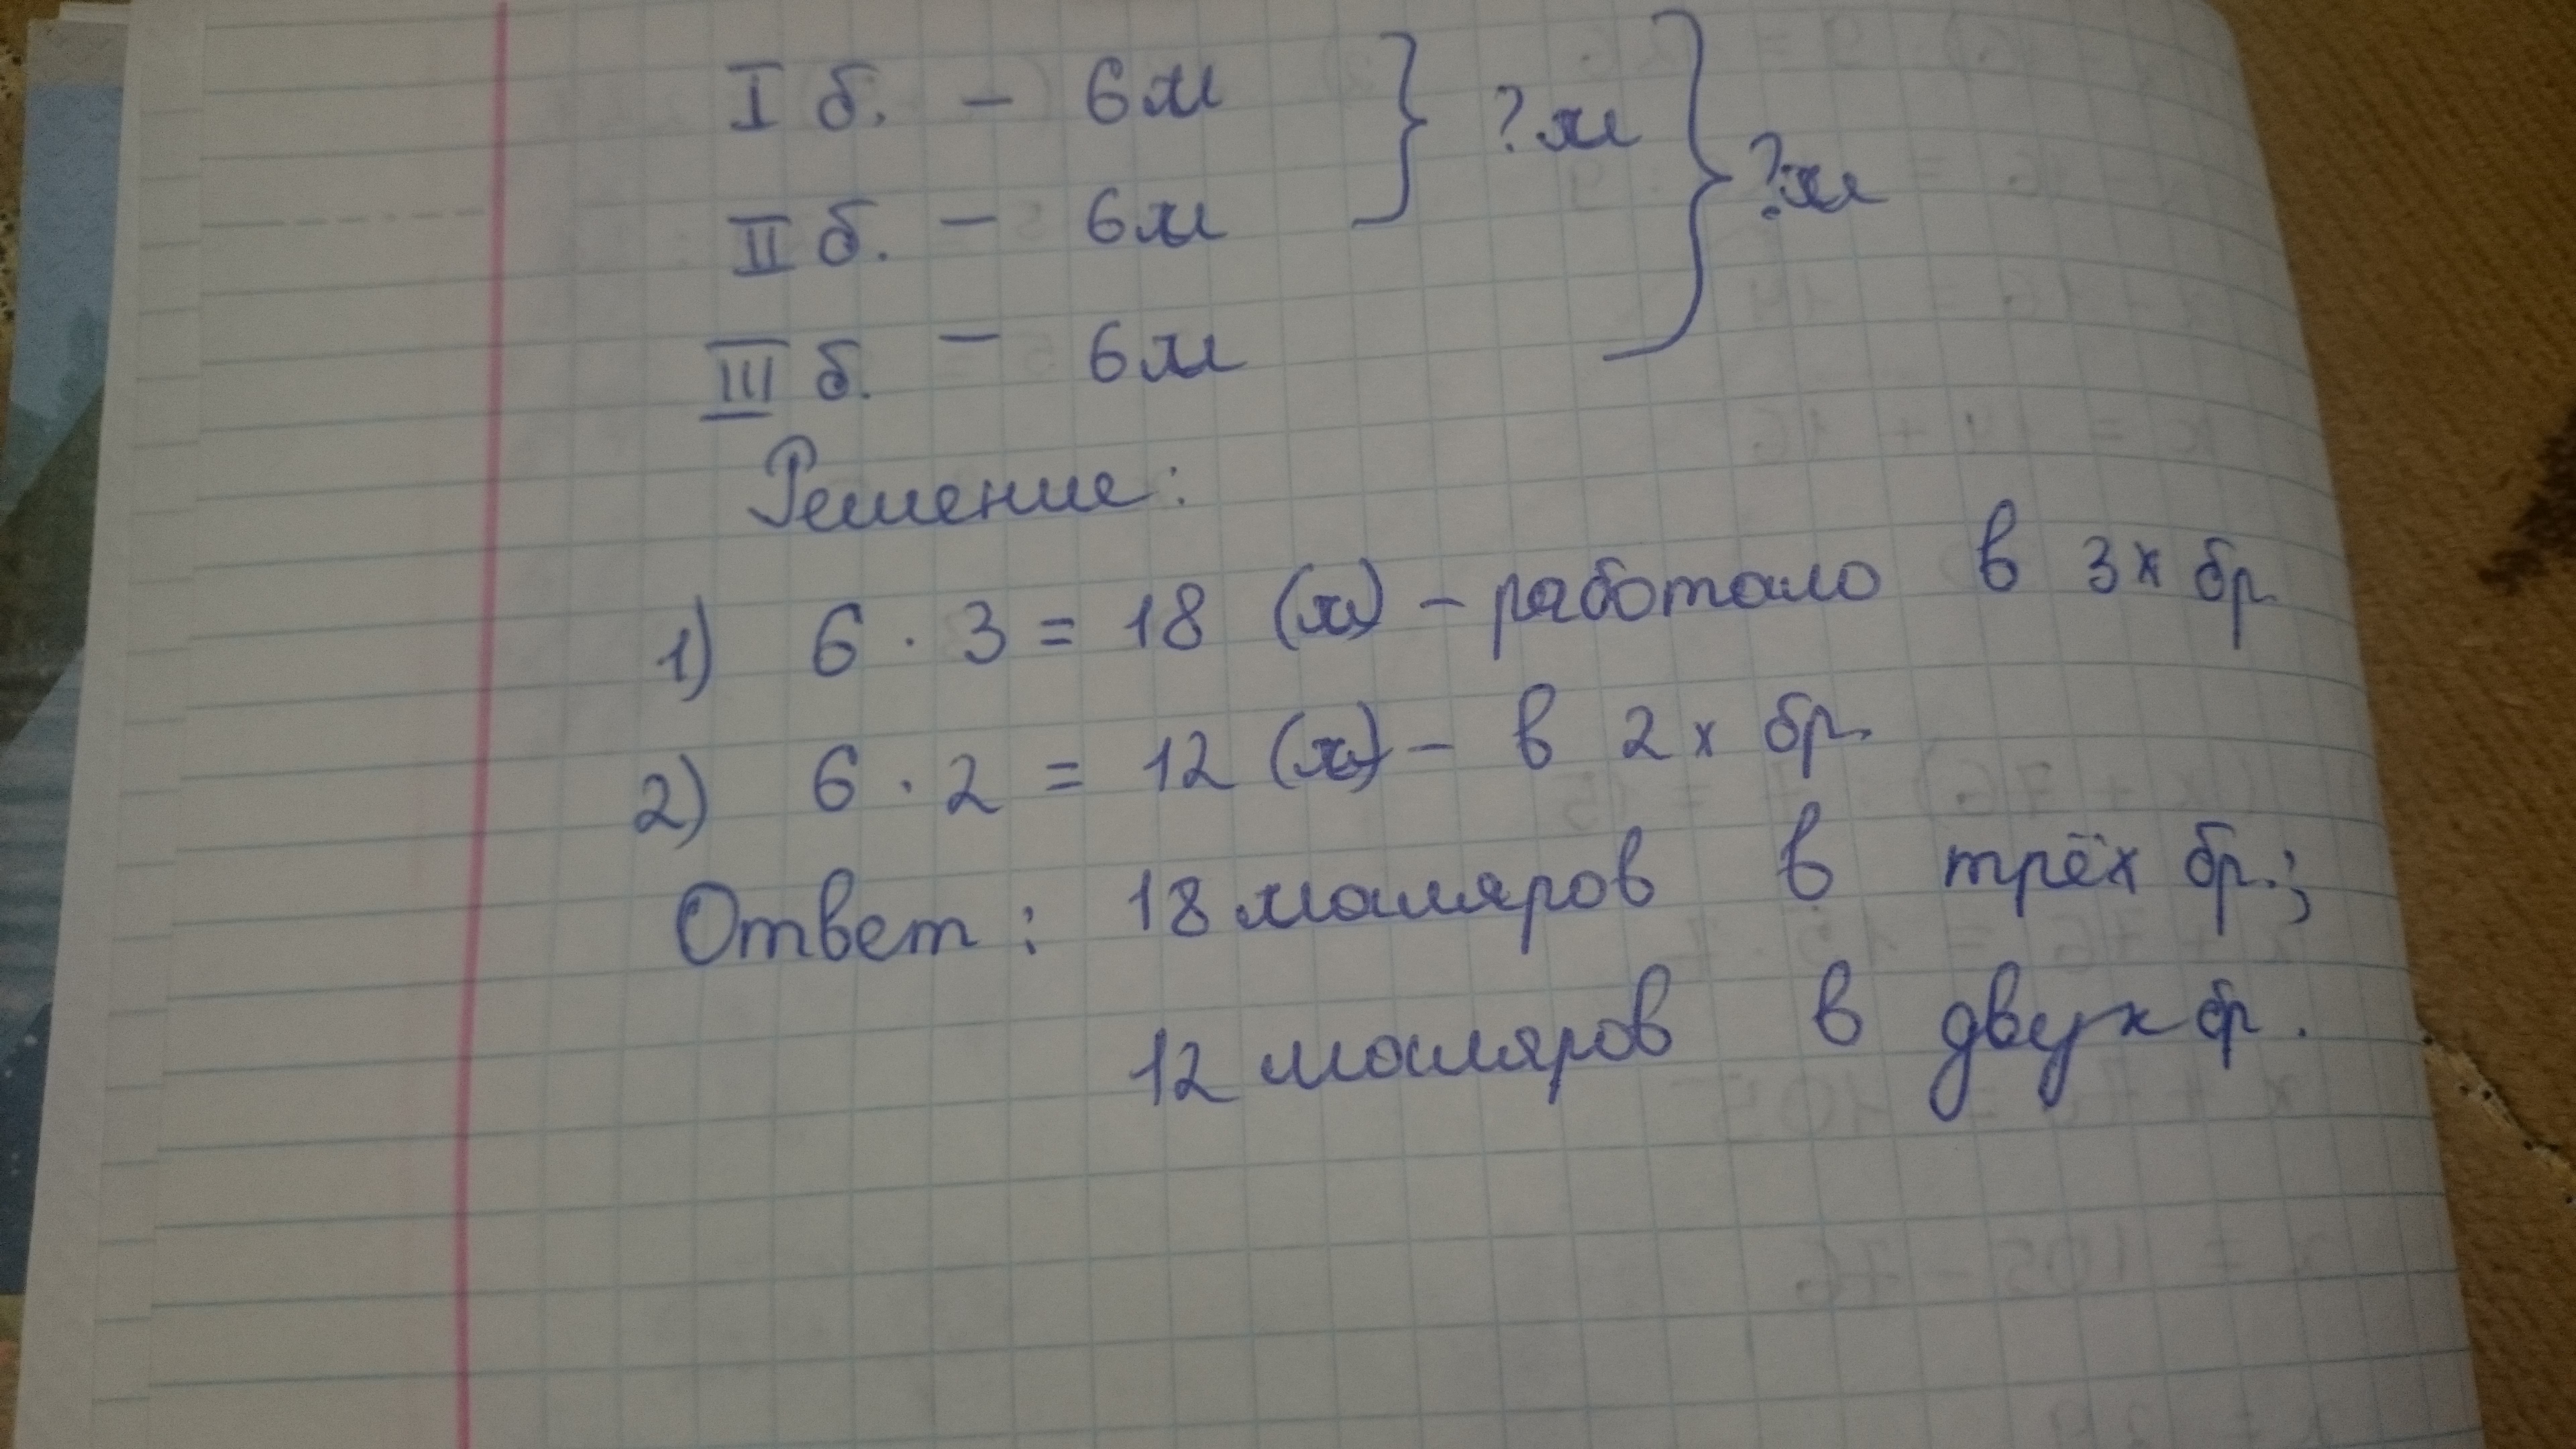 I б. – 6м
?м
?м
II б. – 6м
III б. – 6м
Решение:
1) 6 · 3 = 18 (м) – работало в 3х бр
2) 6 · 2 = 12 (м) – в 2х бр.
Ответ: 18 маляров в трёх бр.;
12 маляров в двух бр.